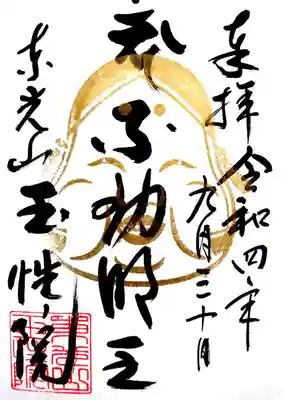 奉拝 令和四年
九月三十日
不動明王
東光山 玉性院